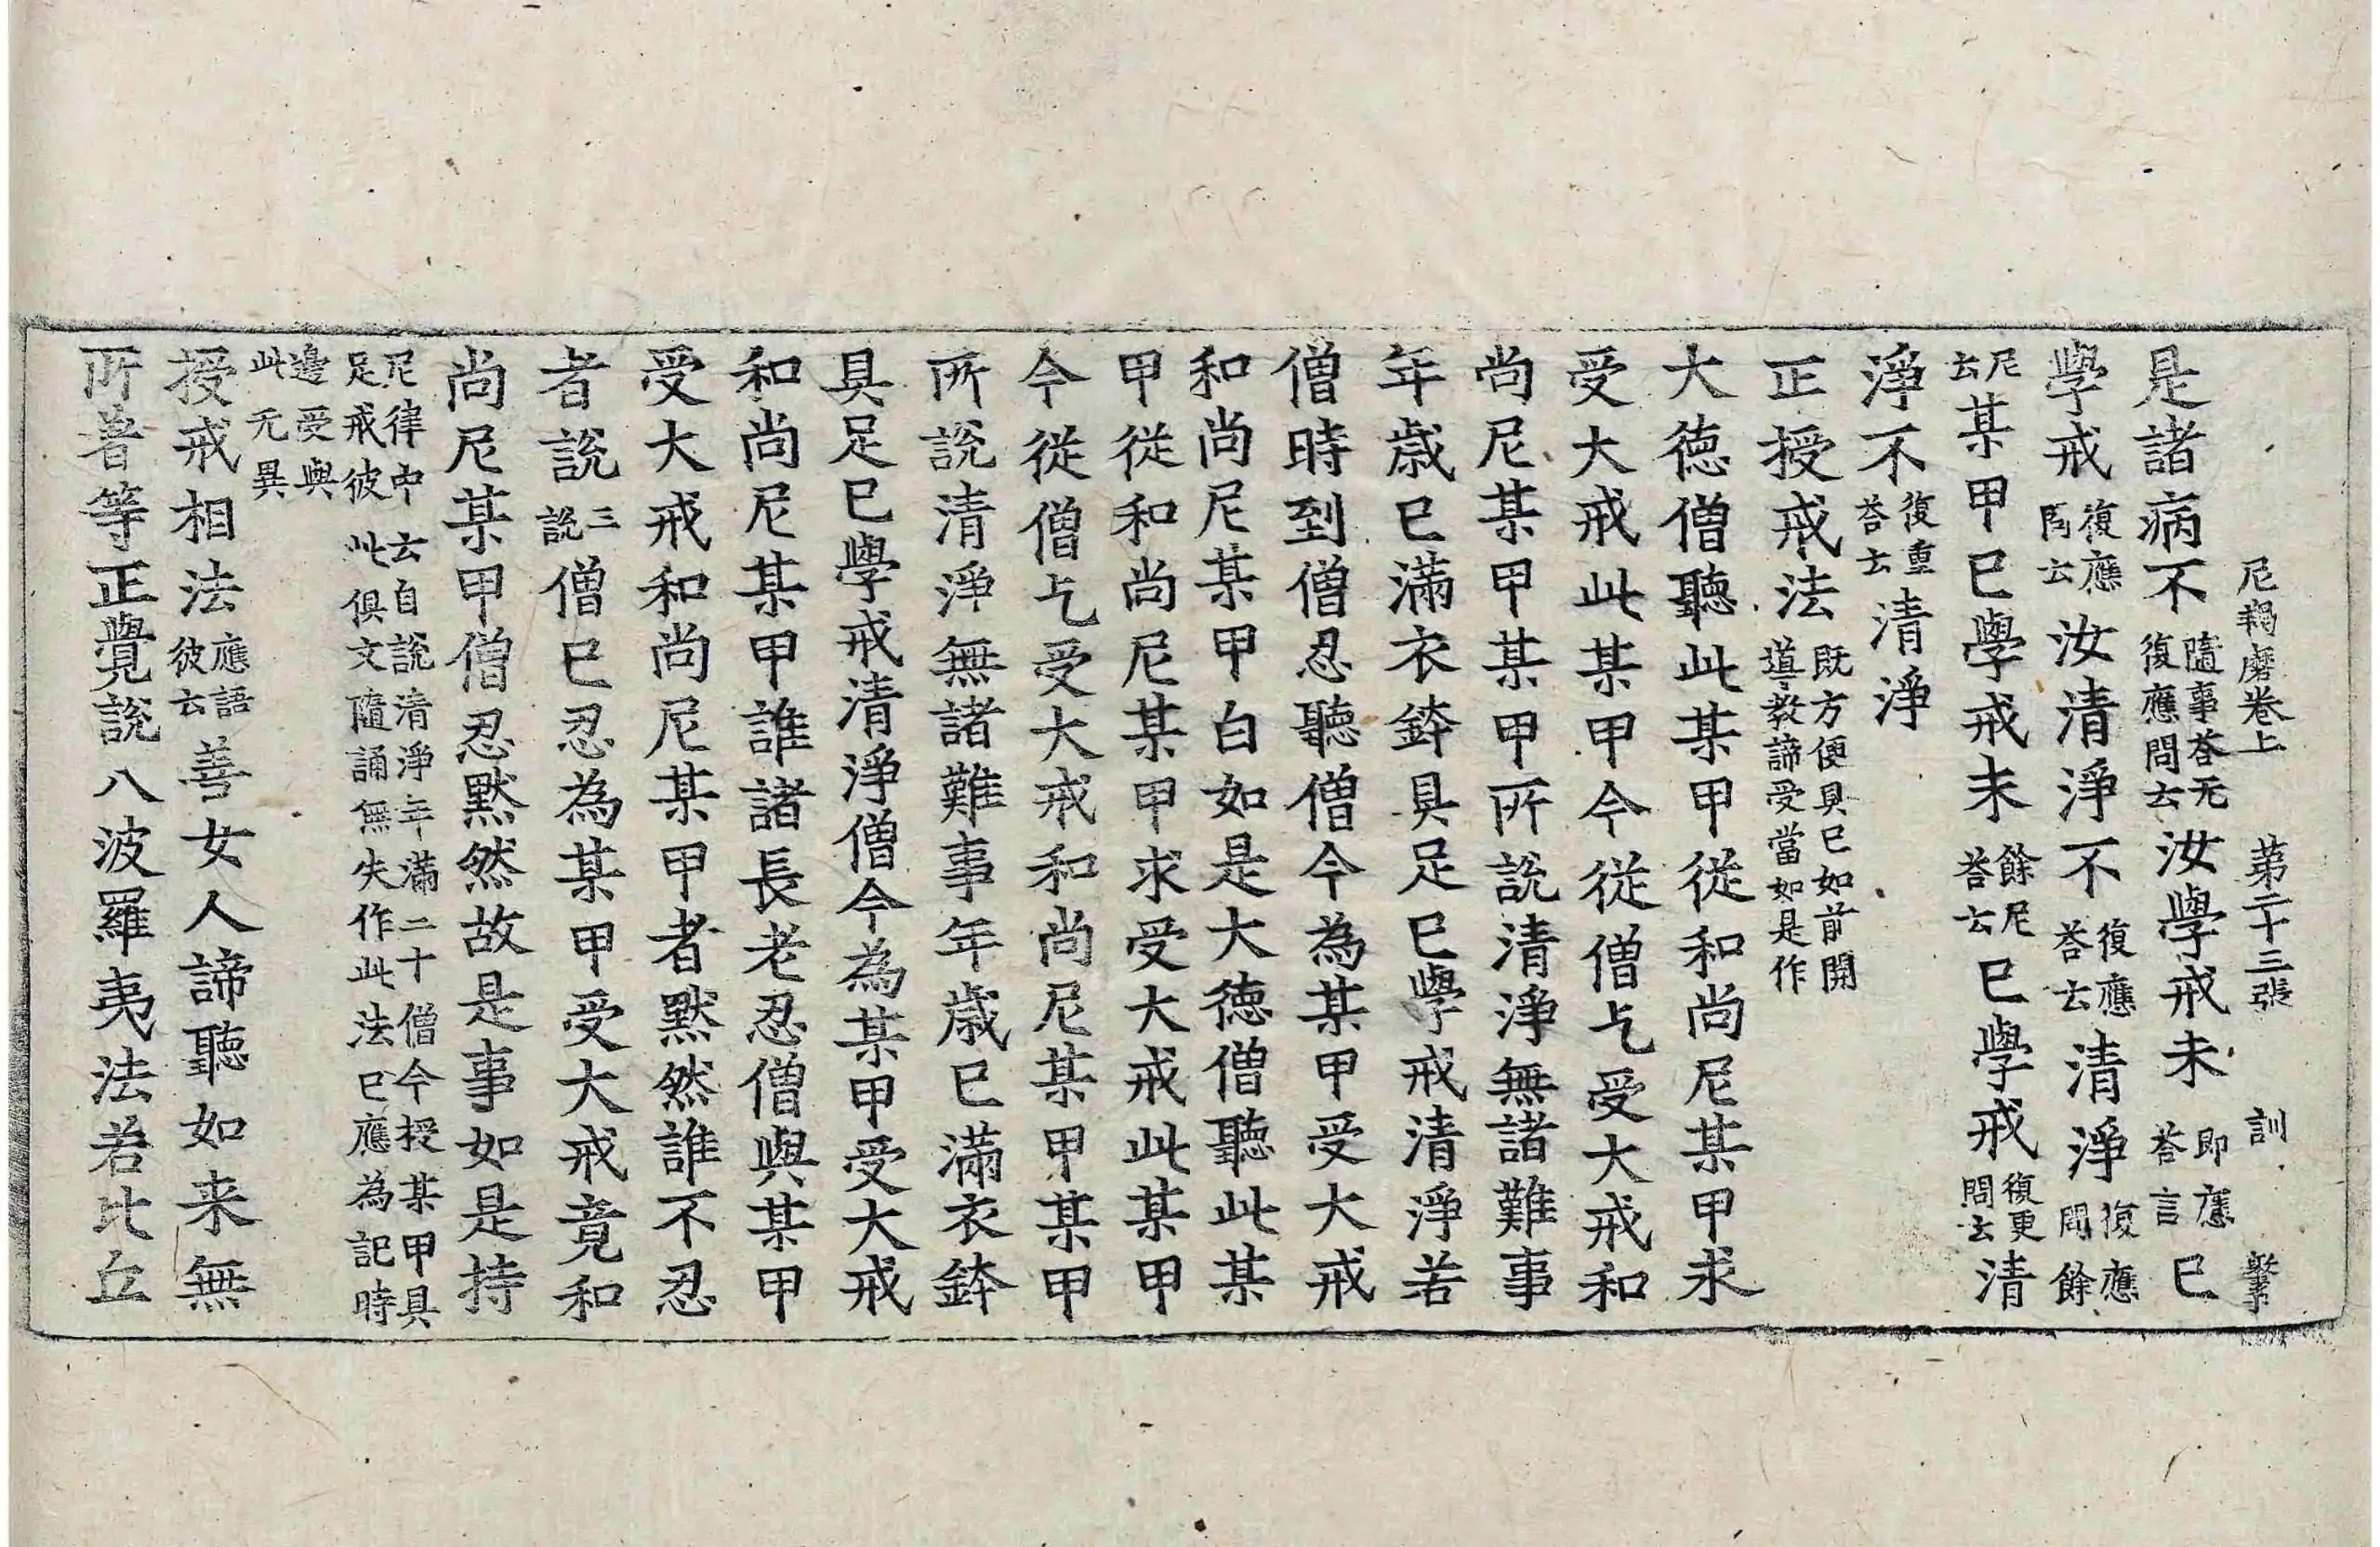 尼羯磨卷上 第二十三張 訓
是諸病不隨事荅无復應問云汝學戒未即應荅言已
學戒復應問云汝清淨不復應荅云清淨復應問餘
尼云某甲已學戒未餘尼荅云已學戒復更問云清
淨不復重荅云清淨
正授戒法既方便具已如前開導教諦受當如是作
大德僧聽此某甲從和尚尼某甲求
受大戒此某甲今從僧乞受大戒和
尚尼某甲某甲所說清淨無諸難事
年歲已滿衣鉢具足已學戒清淨若
僧時到僧忍聽僧今為某甲受大戒
和尚尼某甲白如是大德僧聽此某
甲從和尚尼某甲求受大戒此某甲
今從僧乞受大戒和尚尼某甲某甲
所說清淨無諸難事年歲已滿衣鉢
具足已學戒清淨僧今為某甲受大戒
和尚尼某甲誰諸長老忍僧與某甲
受大戒和尚尼某甲者默然誰不忍
者說三說僧已忍為某甲受大戒竟和
尚尼某甲僧忍默然故是事如是持
尼律中云自說清淨年滿二十僧今授某甲具足戒彼此俱文隨誦無失作此法已應為記時
邊受與此无異
授戒相法應語彼云善女人諦聽如来無
所著等正覺說八波羅夷法若比丘